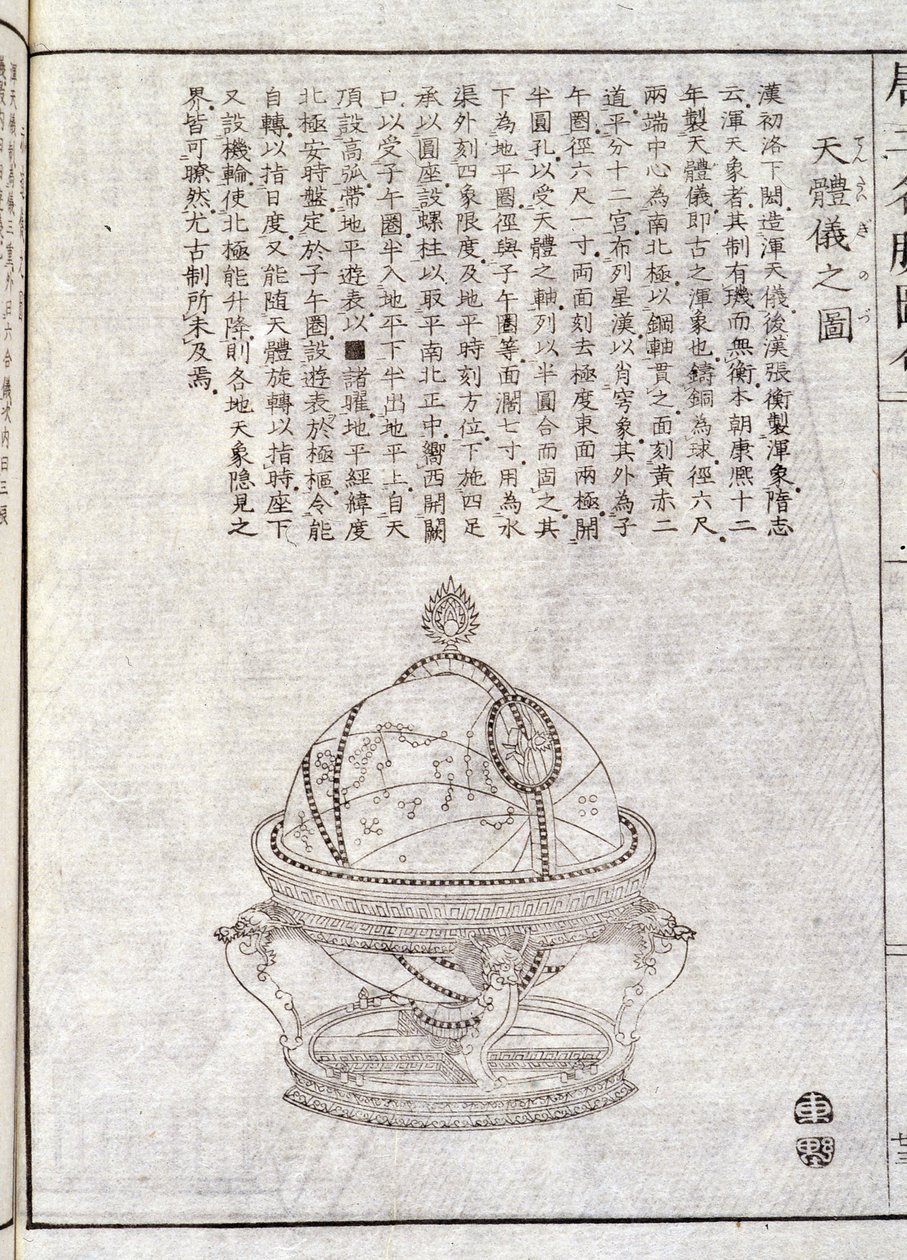 天體儀之圖
てんたいぎのづ
漢初洛下閎造渾天儀後漢張衡製渾象隋志
云渾天象者其制有璣而無衡本朝康熙十二
年製天體儀即古之渾象也鑄銅為球徑六尺
兩端中心為南北極以鋼軸貫之面刻黃赤二
道平分十一宮布列星漢以肖穹象其外為子
午圈徑六尺一寸両面刻去極度東面兩極開
半圓孔以受天體之軸列以半圓合而固之其
下為地平圈徑與子午圈等面濶七寸用為水
渠外刻四象限度及地平時刻方位下施四足
承以圓座設螺柱以取平南北正中嚮西開闕
口以受子午圈半入地平下半出地平上自天
頂設高弧帶地平遊表以諸曜地平經緯度
北極安時盤定於子午圈設遊表於極樞令能
自轉以指日度又能随天體旋轉以指時座下
又設機輪使北極能升降則各地天象隐見之
界皆可瞭然尤古制所未及焉
東野
廿三
渾天儀制為儀三重外曰六合儀次内曰三辰